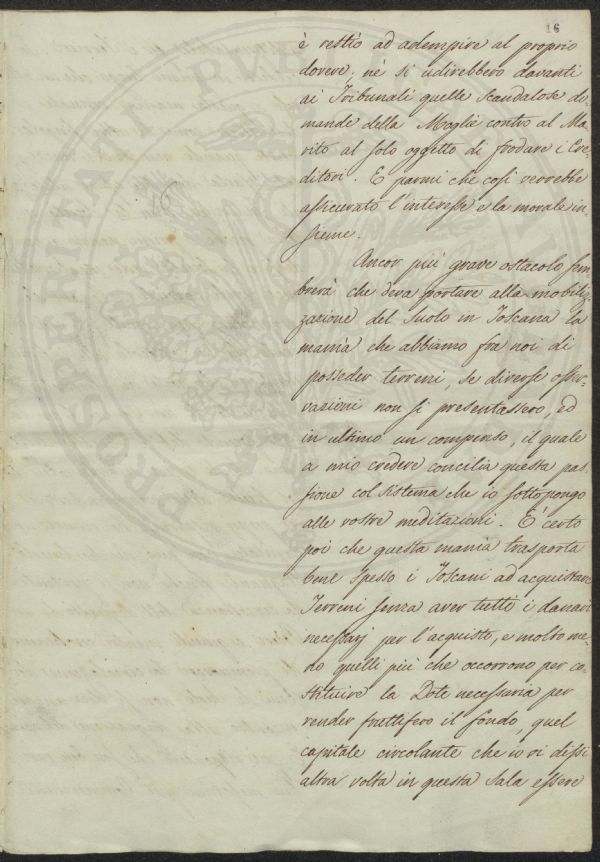 16
è restìo ad adempire al proprio
dovere; nè si udirebbero davanti
ai Tribunali quelle scandalose do-
mande della Moglie contro al Ma-
rito al solo oggetto di frodare i Cre-
ditori. E parmi che così verrebbe
assicurato l'interesse e la morale in-
sieme.
Ancor più grave ostacolo sem
brerà che deva portare alla mobiliz-
zazione del suolo in Toscana la
manìa che abbiamo fra noi di
posseder terreni, se diverse osser-
vazioni non si presentassero, ed
in ultimo un compenso, il quale
a mio credere concilia questa pas
sione col sistema che io sottopongo
alle vostre meditazioni. È certo
poi che questa manìa trasporta
bene spesso i Toscani ad acquistare
Terreni senza aver tutti i danari
necessarj per l'acquisto, e molto me-
no quelli più che occorrono per co-
stituire la Dote necessaria per
render fruttifero il fondo, quel
capitale circolante che io vi dissi
altra volta in questa Sala essere
16
PROSPERITATI PVBLICAE